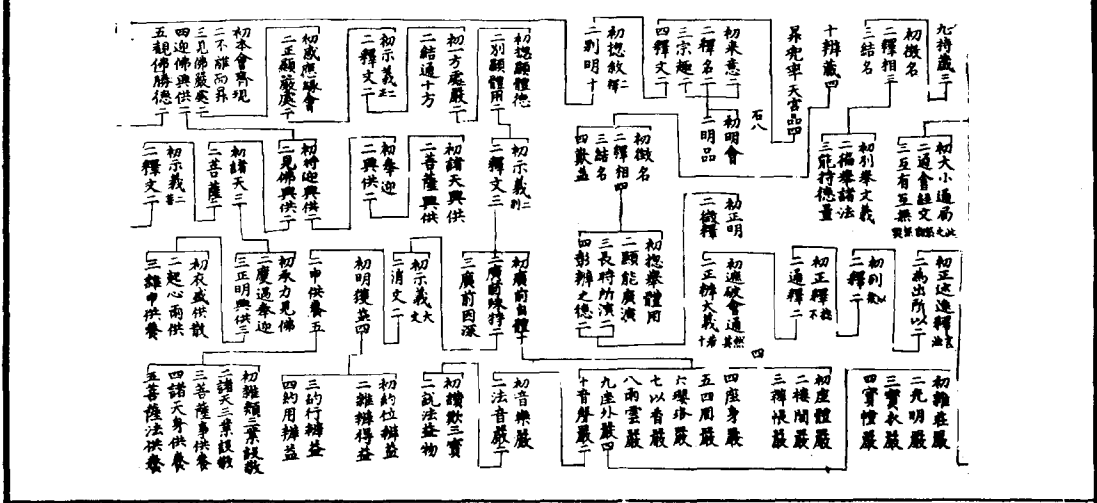 九持藏三
初徵名
二釋相三
三結名
十辨藏四
昇兜率天宮品四
初來意二
二釋名二
三宗趣二
四釋文二
初揔敘釋二
二別明十
初揔顯體德
二別顯體用二
初一方處嚴二
二結通十方
初示義正二
二釋文二
初感應緣會
二正顯嚴處二
初本會齊現
二不離而昇
三見佛嚴處二
四迎佛興供二
五覩佛勝德二
初大小通局
二通會經文
三互有互無
初別舉文義
諸法
三能持德量
石八
初明會
二明品
初徵名
二釋相四
三結名
四歎益
初示義別二
二釋文三
初諸天興供
二菩薩興供
初奉迎
二興供二
初將迎興供二
二見佛興供二
初諸天三
二菩薩二
初示義
二釋文二
初正述進釋
二為出所以二
初別徵
二釋二
初正釋
二通釋二
初正明
二徵釋
初遮破會通
二正辨大義
初揔舉體用
二顯能廣演
三長時所演二
四彰辨之德二
初廣前自體十
二廣前陳持二
三廣前因深
初示義
二消文二
初明獲益四
二申供養五
初承力見佛
二慶遇奉迎
三正明興供三
初衣盛供散
二起心雨供
三雜申供養
初雜莊嚴
二光明嚴
三寶衣嚴
四寶幢嚴
四
初座體嚴
二樓閣嚴
三幃帳嚴
四座身嚴
五四周嚴
六瓔珞嚴
七以香嚴
八雨雲嚴
九座外嚴四
十音聲嚴二
初音樂嚴
二法音嚴二
初讚歎三寶
二說法益物
初約位辨益
二雜辨得益
三約行辨益
四約用辨益
初雜類三業設敬
二諸天三業設敬
三菩薩事供養
四諸天身供養
五菩薩法供養